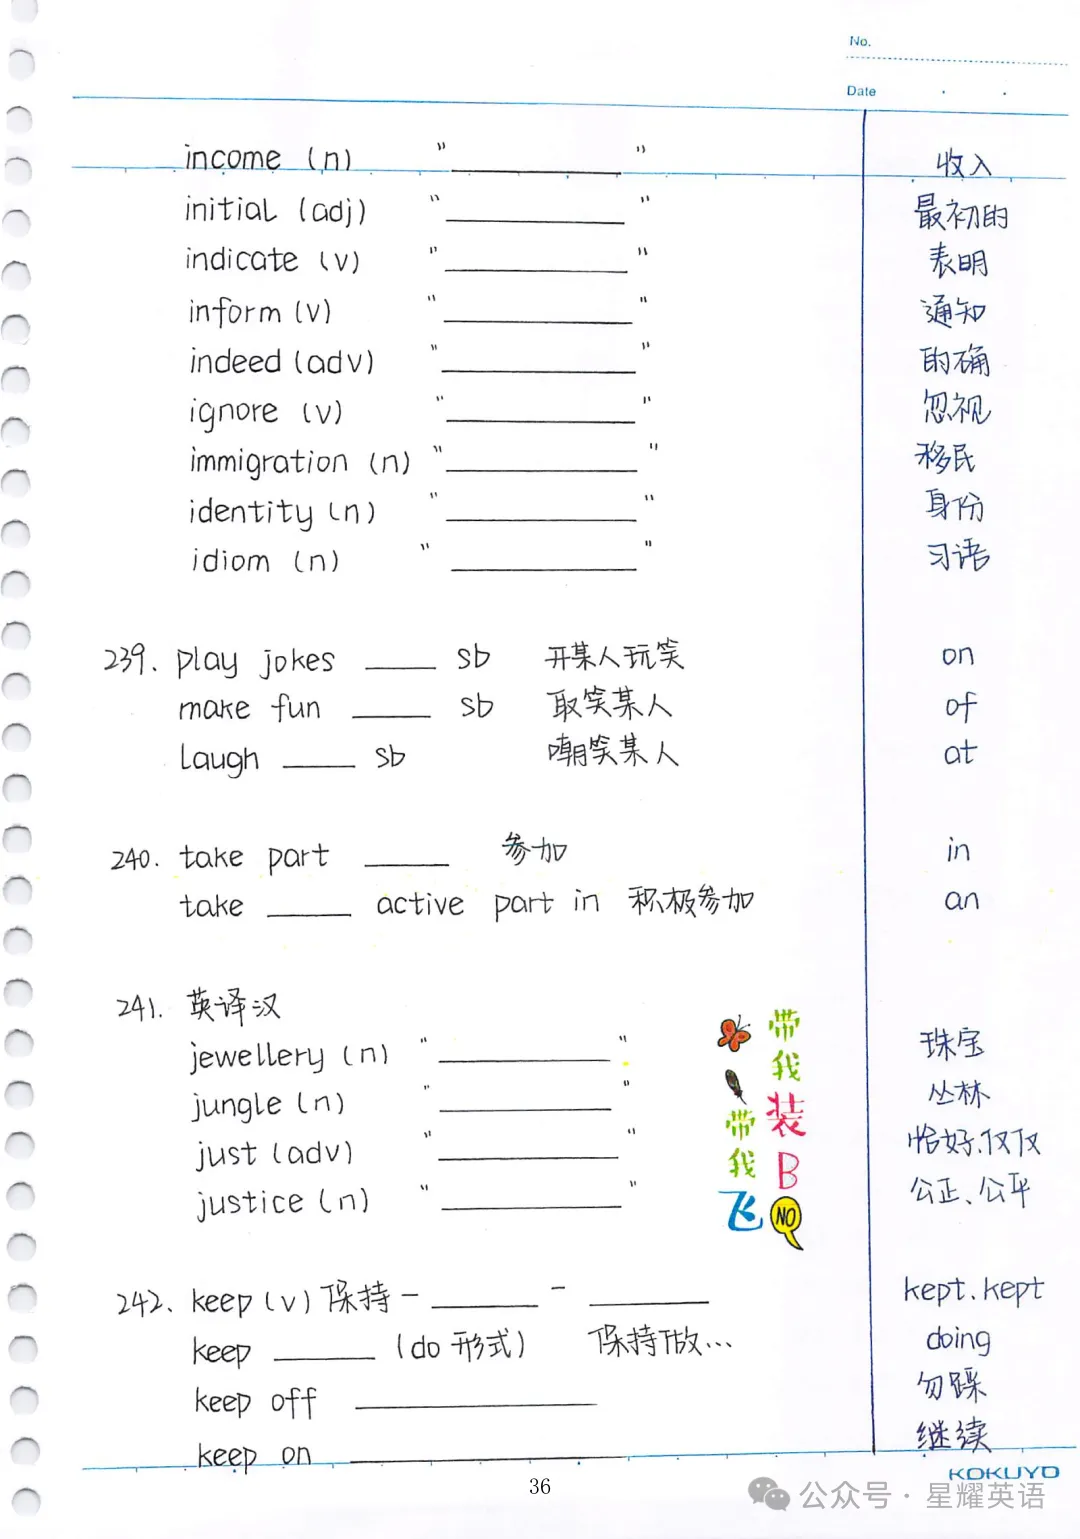 No.
Date
income (n) " ________ " 收入
initial (adj) " ________ " 最初的
indicate (v) " ________ " 表明
inform (v) " ________ " 通知
indeed (adv) " ________ " 的确
ignore (v) " ________ " 忽视
immigration (n) " ________ " 移民
identity (n) " ________ " 身份
idiom (n) " ________ " 习语
239. play jokes ____ sb 开某人玩笑 on
make fun ____ sb 取笑某人 of
laugh ____ sb 嘲笑某人 at
240. take part ____ 参加 in
take ____ active part in 积极参加 an
241. 英译汉
jewellery (n) " ________ " 珠宝
jungle (n) " ________ " 丛林
just (adv) " ________ " 恰好、仅仅
justice (n) " ________ " 公正、公平
带我装B
NO
带我飞
242. keep (v) 保持 - ______ - ______ kept. kept
keep ______ (do 形式) 保持做... doing
keep off ____________ 勿踩
keep on ____________ 继续
KOKUYO
36
公众号 · 星耀英语